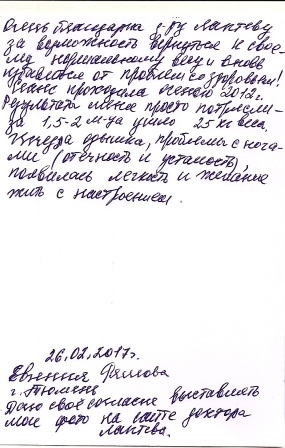 Очень благодарна д-ру Лаптеву
за возможность вернуться к свое-
му нормальному весу и вновь
избавиться от проблем со здоровьем!
Сеанс проходила осенью 2012г.
Результаты меня просто потрясли-
за 1,5-2 м-ца ушло 25 кг веса.
Исчезла одышка, проблемы с нога-
ми (отечность и усталость),
появилась легкость и желание
жить с настроением.
26.02.2017г.
Евгения
г. Тюмень
Даю своё согласие выставлять
мои фото на сайте доктора
Лаптева.